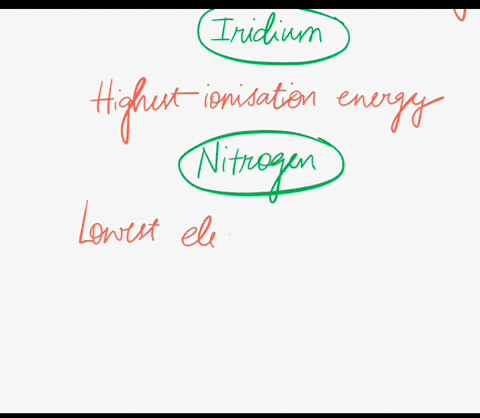 Iridium
Highest ionisation energy
Nitrogen
Lowest ele